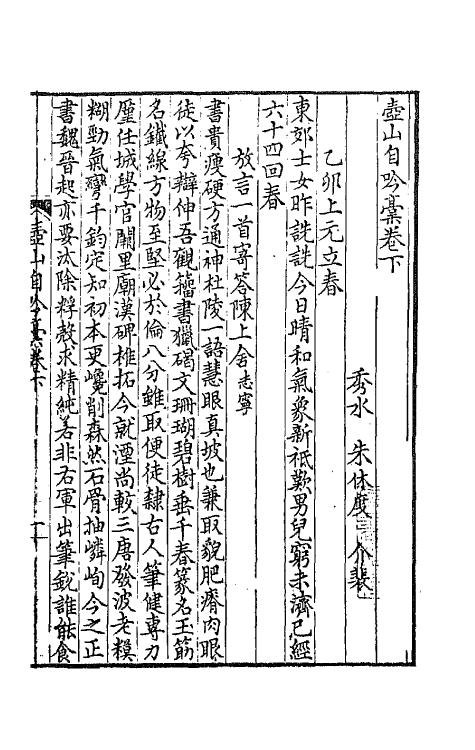 壺山自吟藁卷下
秀水 朱休度 介裴
乙卯上元立春
東郊士女昨詵詵今日晴和氣象新祗歎男兒窮未濟已經
六十四回春
放言一首寄答陳上舍志寧
書貴瘦硬方通神杜陵一語慧眼真坡也兼取貌肥瘠肉眼
徒以夸辯伸吾觀籀書獵碣文珊瑚碧樹垂千春篆名玉筯
名鐵線方物至堅必於倫八分雖取便徒隸古人筆健專力
厪任城學官闕里廟漢碑椎拓今就湮尚較三唐發波老糢
糊勁氣彎千鈞定知初本更巉削森然石骨抽嶙峋今之正
書魏晉起亦要汰除粰𥹷求精純若非右軍出筆銳誰能食
壺山自吟藁卷下